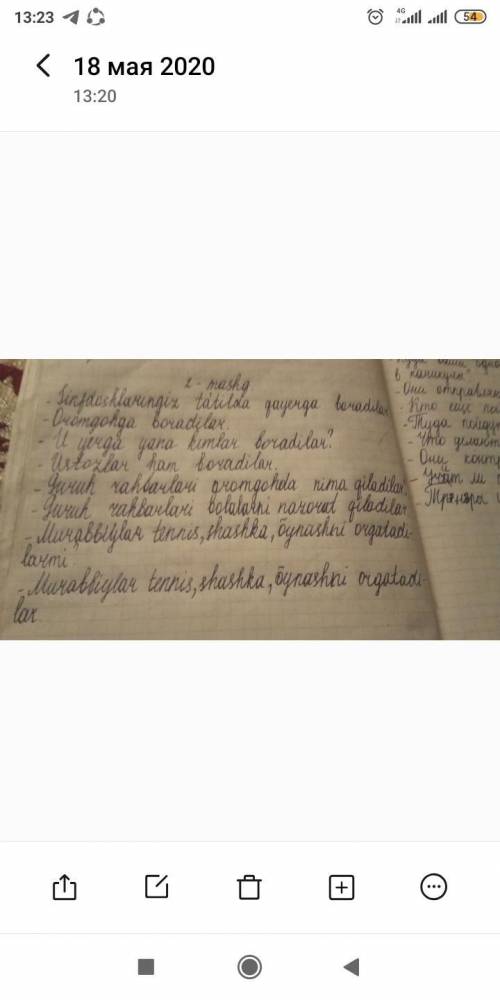 13:23
4G
54
18 мая 2020
13:20
2 - mashq
- Sinfdoshlaringiz tatilda qayerga boradilar
- Oromgohga boradilar.
- U yerga yana kimlar boradilar?
- Ustozlar ham boradilar.
- Guruh rahbarlari oromgohda nima qiladilar?
- Guruh rahbarlari bolalarni nazorat qiladilar
- Murabbiylar tennis, shashka, õynashni orgatadi-
larmi.
- Murabbiylar tennis, shashka, õynashni orgatadi-
lar.
в каникул
- Они отправляю
- Кто еще по
- Туда
- Что делают
- Они контр
- Учат ли
- Тренера